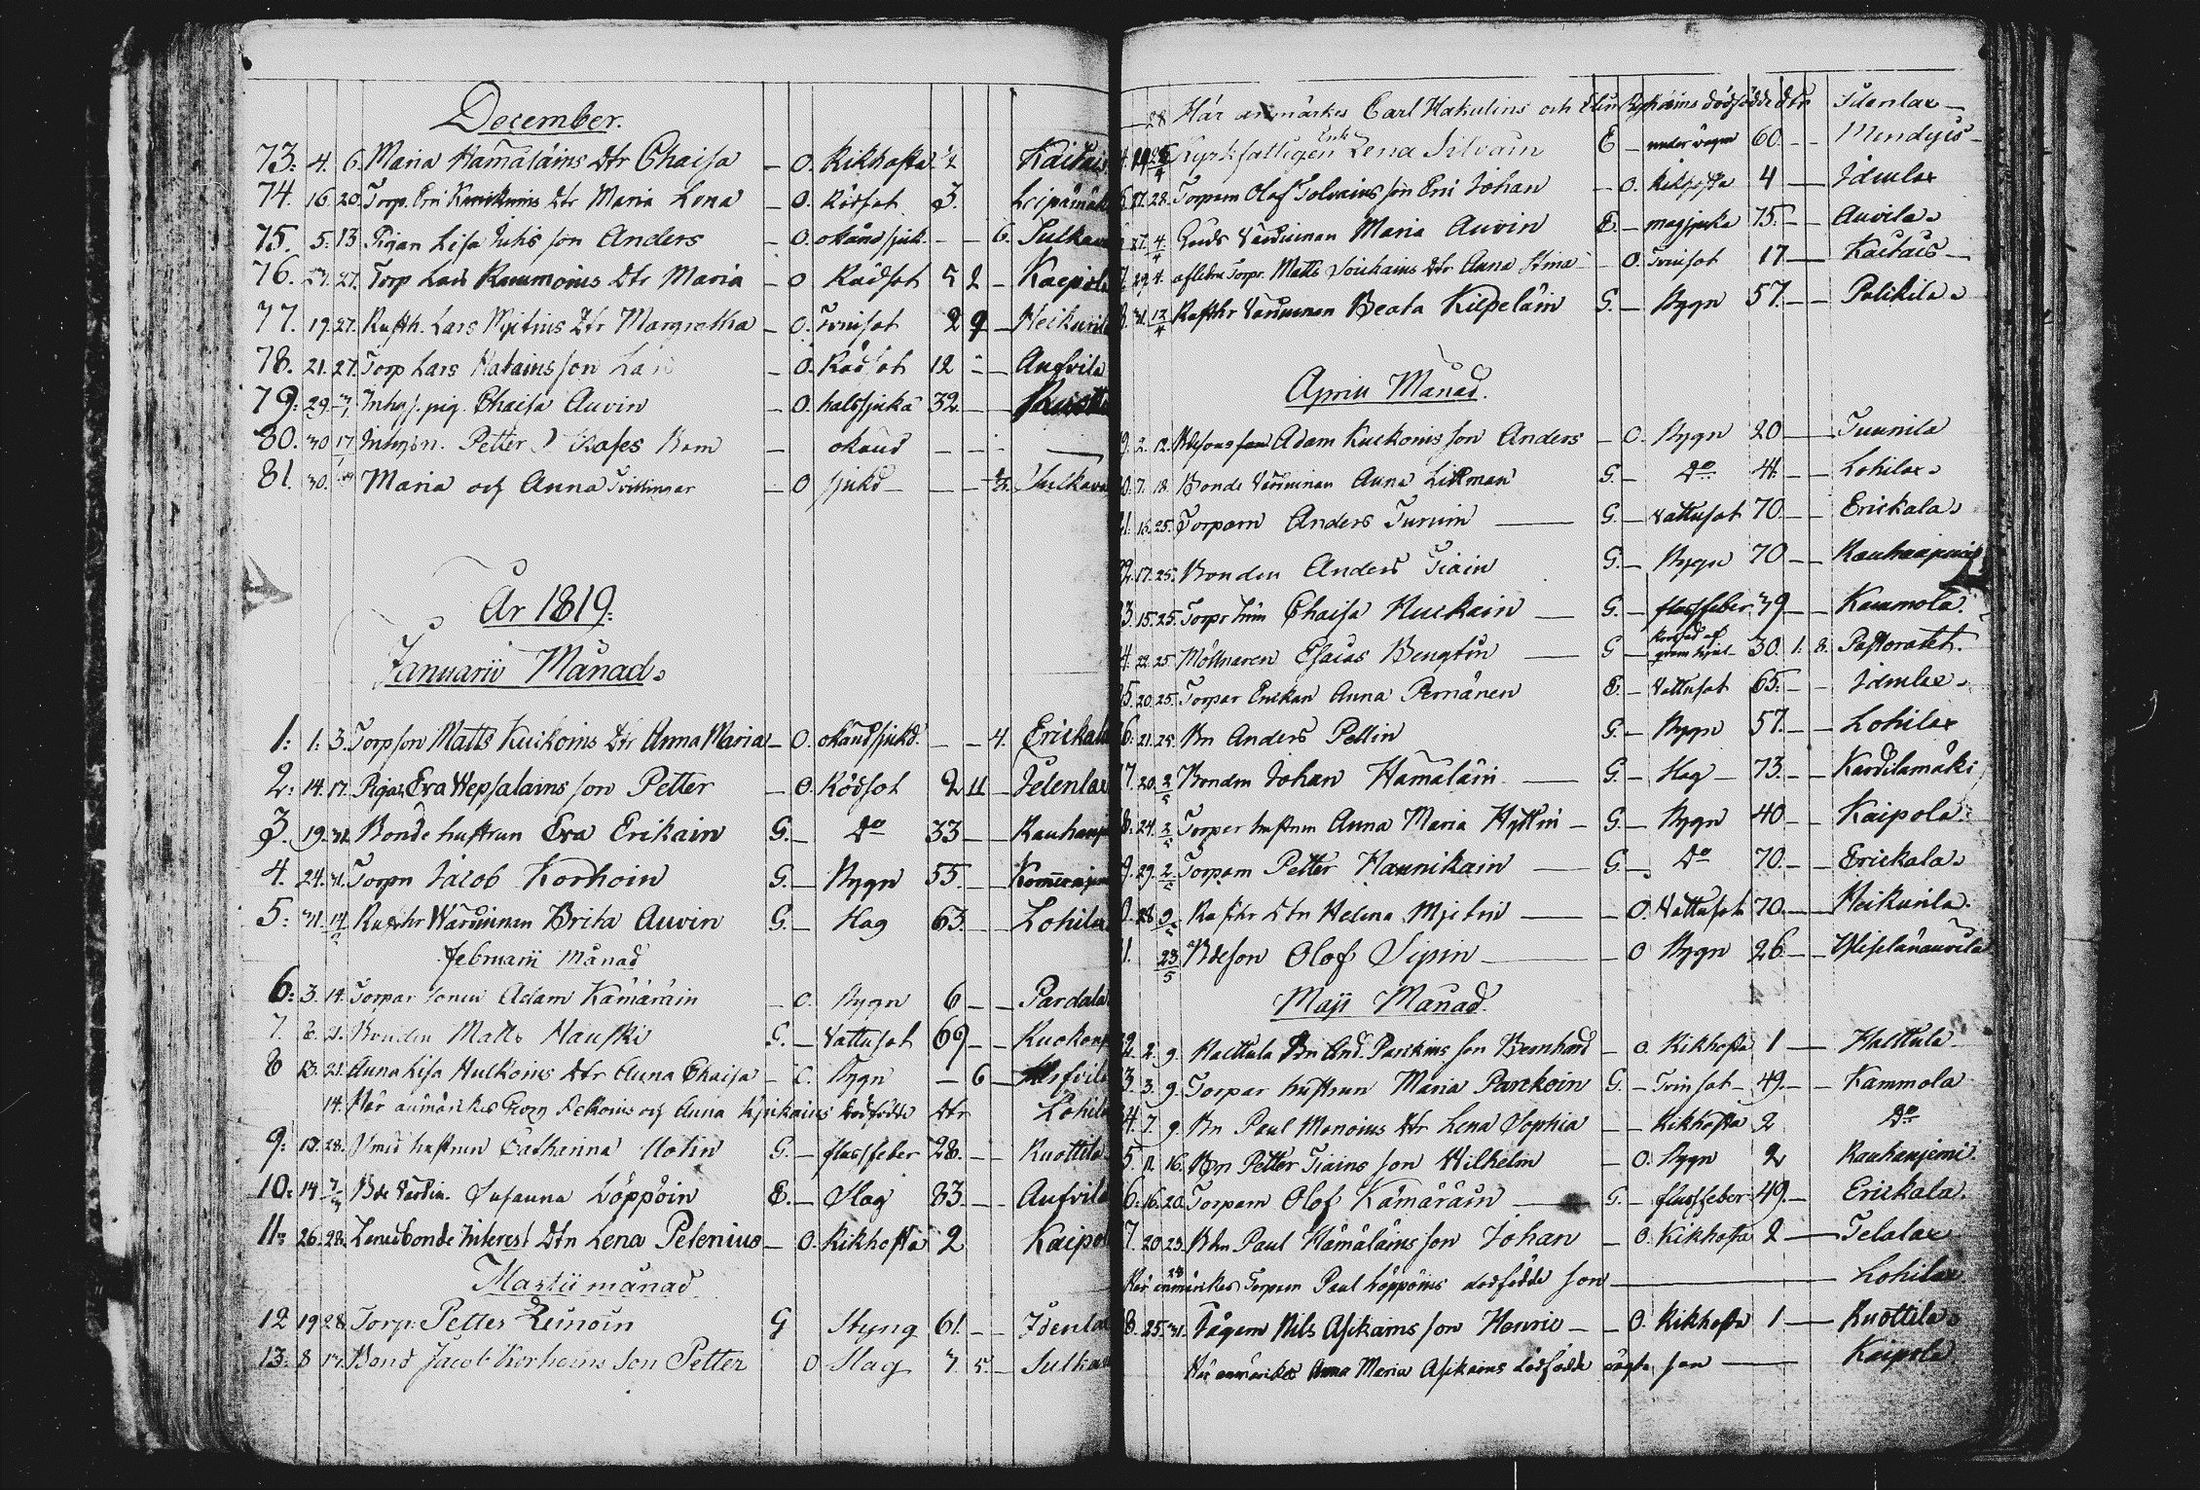 December.
73: 4. 6. Maria Hämäläins Dtr Chaisa - O. Kikhosta ½ Kaitais
74. 16 20. Torp. Eri Dtr Maria Lena - O. Rödsot 3.
75. 5. 13. Pigan Lisa Juhis son Anders - O. okänd sjuk. - - 6. Sulkava
76. 27. Torp Lars Dtr Maria - O Rödsot 5 2 - Kaipola
77. 19 27. Rusth. Lars Mjitins Dtr Margretha - O. Tvinsot 2 9 - Heikurila
78. 21. 27. Torp Lars son - O. Rödsot 12 - - Aufvila
79: 29. Inhys. pig. Chaisa Auvin - O. halssjuka 32 - -
80. 30 17 Petter Barn - okänd - - -
81. 30. Maria och Anna Tvillingar - O sjukd - - - Sulkava
År 1819:
Januarii Månad.
1: 1: 3. Torpson Matts Kuikoins Dtr Anna Maria - O. okänd sjukd. - - 4. Erickala
2: 14. 17. Pigan Eva Wepsalains son Petter - O. Rödsot 2 11 - Telenlax
3. 19. 31. Bonde hustrun Eva Erikain G. - Do 33 - - Rauhan
4. 24. 31. Torpn Jacob Korhoin G. - Stygn 55. - -
5: 31. 14/2 Rusthr Värdinnan Brita Auvin G. - Slag 63. - - Lohilax
Februarii månad
6: 3. 14. Torpar sonen Adam Kämäräin - O. Stygn 6 - - Pardala
7. 6. 21. Bonden Matts Hauski G. - Vattusot 69 - -
8 13. 21. Anna Lisa Hulkoins Dtr Anna Chaisa - O. Stygn - 6 - Aufvila
14. Här anmärkes Georg och Anna dödfödde Dtr Lohila
9: 13. 28. Smed hustrun Catharina G. - flussfeber 28. - - Ruottila
10: 14 Bde Värdin. Susanna Löppöin E. - Slag 83. - - Aufvila
11: 26. 28. Bonde Dtr Lena Pelenius - O. Kikhosta 2 Kaipola
Martii månad
12 19 28. Torp: Petter Leinoin G Styng 61. - -
13: 8 Bond Jacob Korhoins Son Petter O Slag 7. 5. - Sulkava
28 Här anmärkes Carl Hakulins och dödfödde dtr Telenlax -
Kyrkfattigen Enk. Lena Silvain E - under vägen 60. - -
28. Torparn Olof Tolvains son Eri Johan - O. Kikhosta 4 - Idenlax
27. 4/4 Gards Värdinnan Maria Auvin E. - magsjuka 75. - - Auvila.
29. 4. aflidne Torpr. Matts Dtr Anna - O. Tvinsot 17 - Kaitais -
31. 12/4 Rusthr Värdinnan Beata Kilpeläin G. - Stygn 57. - -
April Månad.
9. 2. 12. Adam Kuikoins son Anders - O. Stygn 20 - Tuunila
7. 18. Bonde Värdinnan Anna Likman G. - Do 41. - - Lohilax.
16. 25. Torparn Anders Turuin - G. - Vattusot 70. - - Erickala.
17. 25. Bonden Anders Tiain G. - Stygn 70 - -
3. 15. 25. Torpr hun Chaisa Kuikain - G. - flussfeber 39. - - Kammola.
4. 22. 25. Möllnaren Esaias Bengtin - G - 30. 1. 8. Pastoratet.
5. 20. 25. Torpar Enckan Anna Pernänen E. - Vattusot 65. - - Idenlax.
6. 21. 25. Bn Anders Pellin G. - Stygn 57. - - Lohilax
7. 20. 2/5 Bonden Johan Hämäläin - G. - Slag - 73. - - Kardilamäki
8. 24. 2/5 Torpar hustrun Anna Maria Hyttin - G. - Stygn 40 - - Kaipola.
9. 29. 2/5 Torparn Petter Haunikain - G. - Do 70. - - Erickala.
28 9/5 Rusthr Dtr Helena Mjitin - - O. Vattusot 70. - - Heikurila.
1. 23/5 Bdeson Olof Sipin - - O Stygn 26 - -
Maji Månad.
2. 2. 9. Bn And. son Bernhard - O. Kikhosta 1 - Haittula
3. 3. 9. Torpar hustrun Maria Parckoin G. - Tvinsot - 49. - - Kammola
4. 7. 9. Bn Paul Manoins Dtr Lena Sophia - - Kikhosta 2 Do
5. 11. 16. Bn Petter Tiains son Wilhelm - O. Stygn 2 Rauhaniemi
6. 16. 20. Torparn Olof Kämäräin - G. - flussfeber 49. - Erickala.
7. 20. 23. Bn Paul Hämäläins son Johan - O. Kikhosta 2 - Telalax
23 Här anmärkes Torparn Paul Löppöins dödfödde son - Lohilax
8. 25. 31. Nils Asikains son Henric - - O. Kikhosta 1 - Ruottila.
Här anmärkes Anna Maria Asikains dödfödde oägta son - Kaipola